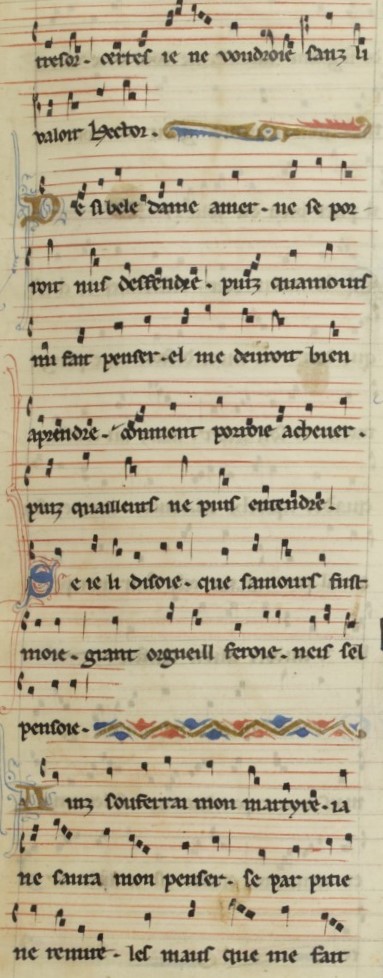 tresor. certes ie ne voudroie sanz li
valoir hector.
De si bele dame amer. ne se por
roit nus deffendre. puiz quamours
mi fait penser. el me deuroit bien
aprendre. comment porroie acheuer.
puiz quailleurs ne puis entendre.
Se ie li disoie. que samours fust
moie. grant orgueill feroie. neis sel
pensoie.
Ainz souferrai mon martyre. ia
ne saura mon penser. se par pitie
ne remire. les maus que me fait